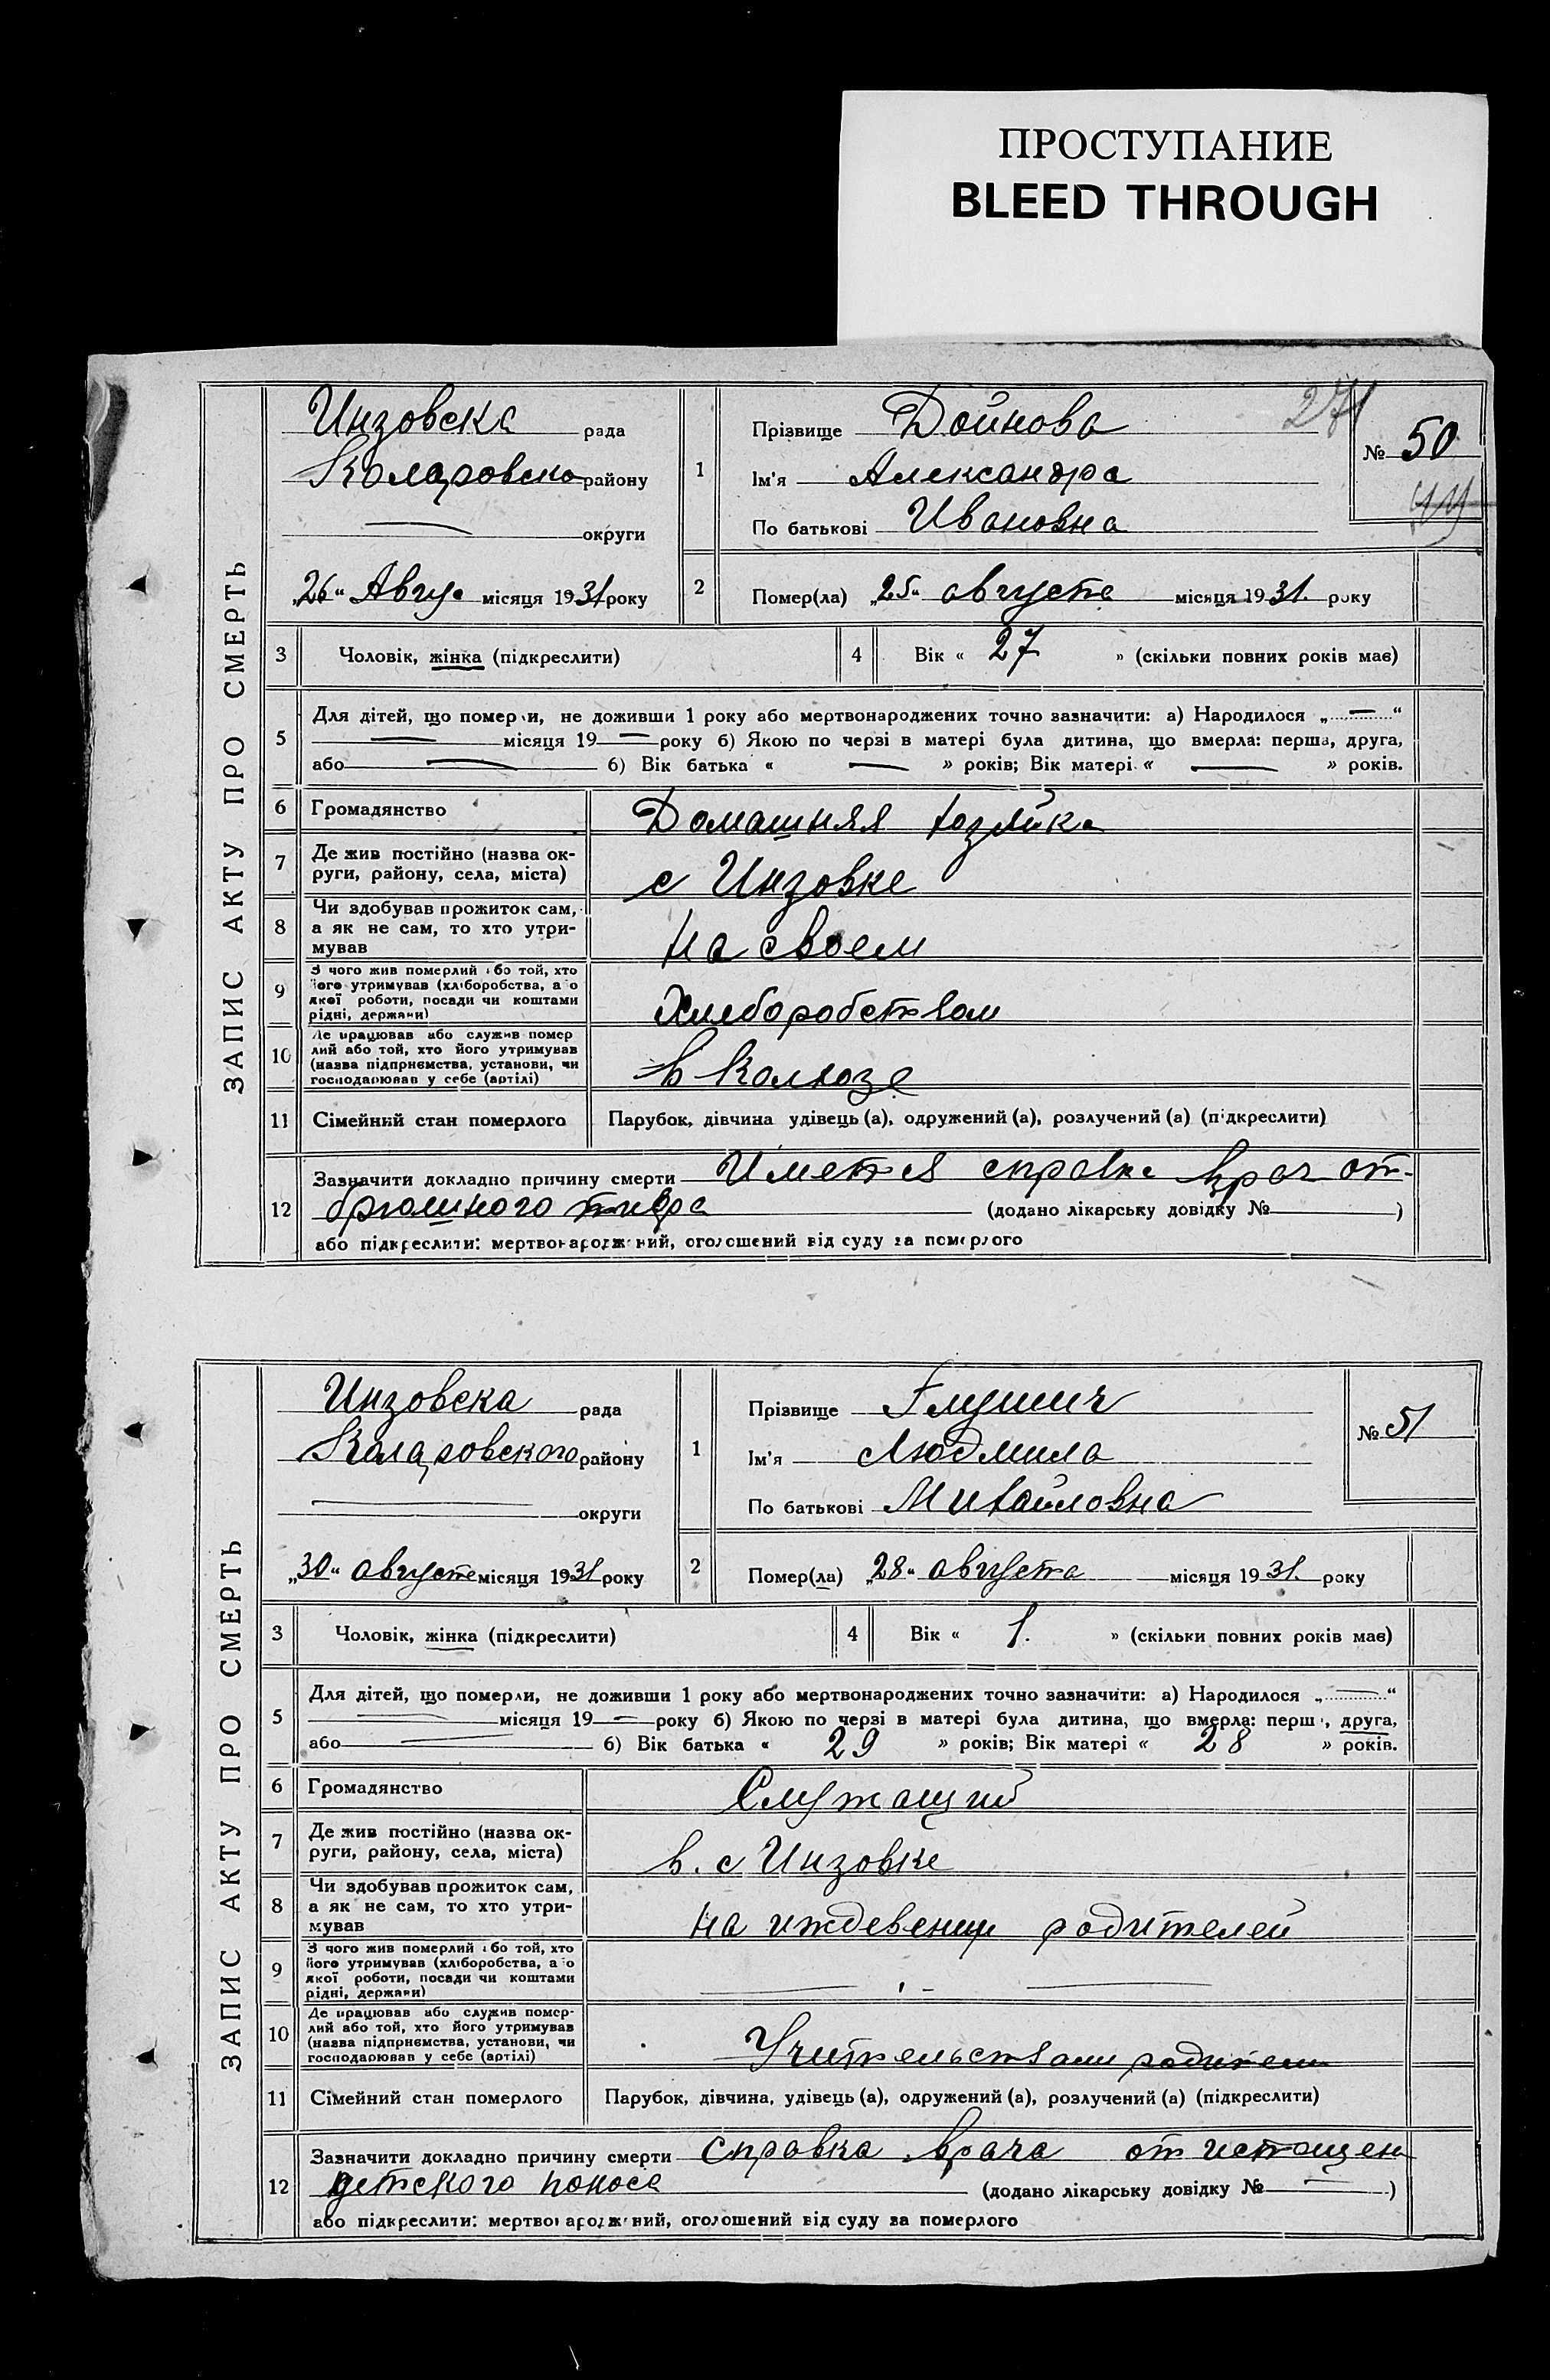 ПРОСТУПАНИЕ
BLEED THROUGH
ЗАПИС АКТУ ПРО СМЕРТЬ
Инзовска рада
Коларовско району
округи
„26“ Авгус місяця 1931 року
1
Прізвище Дойнова
Ім'я Александра
По батькові Ивановна
271
№ 50
2
Помер(ла) „25“ августа місяця 1931. року
3 Чоловік, жінка (підкреслити)
4 Вік « 27 » (скільки повних років має)
5 Для дітей, що померли, не доживши 1 року або мертвонароджених точно зазначити: а) Народилося „ — “
— місяця 19 — року б) Якою по черзі в матері була дитина, що вмерла: перша, друга,
або — б) Вік батька « — » років; Вік матері « — » років.
6 Громадянство Домашняя хозяйка
7 Де жив постійно (назва ок-
руги, району, села, міста) с Инзовке
8 Чи здобував прожиток сам,
а як не сам, то хто утри-
мував На своем
9 З чого жив померлий або той, хто
його утримував (хліборобства, або
якої роботи, посади чи коштами
рідні, держави) Хлеборобством
10 Де працював або служив помер
лий або той, хто його утримував
(назва підприємства, установи, чи
господарював у себе (артілі) в Колхозе
11 Сімейний стан померлого Парубок, дівчина удівець (а), одружений (а), розлучений (а) (підкреслити)
12 Зазначити докладно причину смерти Иметия справка врач от
брюшного тифа (додано лікарську довідку № )
або підкреслити: мертвонароджений, оголошений від суду за померлого
ЗАПИС АКТУ ПРО СМЕРТЬ
Инзовска рада
Коларовского району
округи
„30“ августа місяця 1931 року
1
Прізвище Глушич
Ім'я Людмила
По батькові Михайловна
№ 51
2
Помер(ла) „28“ августа місяця 1931. року
3 Чоловік, жінка (підкреслити)
4 Вік « 1. » (скільки повних років має)
5 Для дітей, що померли, не доживши 1 року або мертвонароджених точно зазначити: а) Народилося „ — “
— місяця 19 — року б) Якою по черзі в матері була дитина, що вмерла: перша, друга,
або — б) Вік батька « 29 » років; Вік матері « 28 » років.
6 Громадянство Служащий
7 Де жив постійно (назва ок-
руги, району, села, міста) в. с Инзовке
8 Чи здобував прожиток сам,
а як не сам, то хто утри-
мував на иждевении родителей
9 З чого жив померлий або той, хто
його утримував (хліборобства, або
якої роботи, посади чи коштами
рідні, держави) —
10 Де працював або служив помер-
лий або той, хто його утримував
(назва підприємства, установи, чи
господарював у себе (артілі) Учительствами родители
11 Сімейний стан померлого Парубок, дівчина, удівець (а), одружений (а), розлучений (а) (підкреслити)
12 Зазначити докладно причину смерти справка врача от истощен
детского поноса (додано лікарську довідку № — )
або підкреслити: мертвонароджений, оголошений від суду за померлого